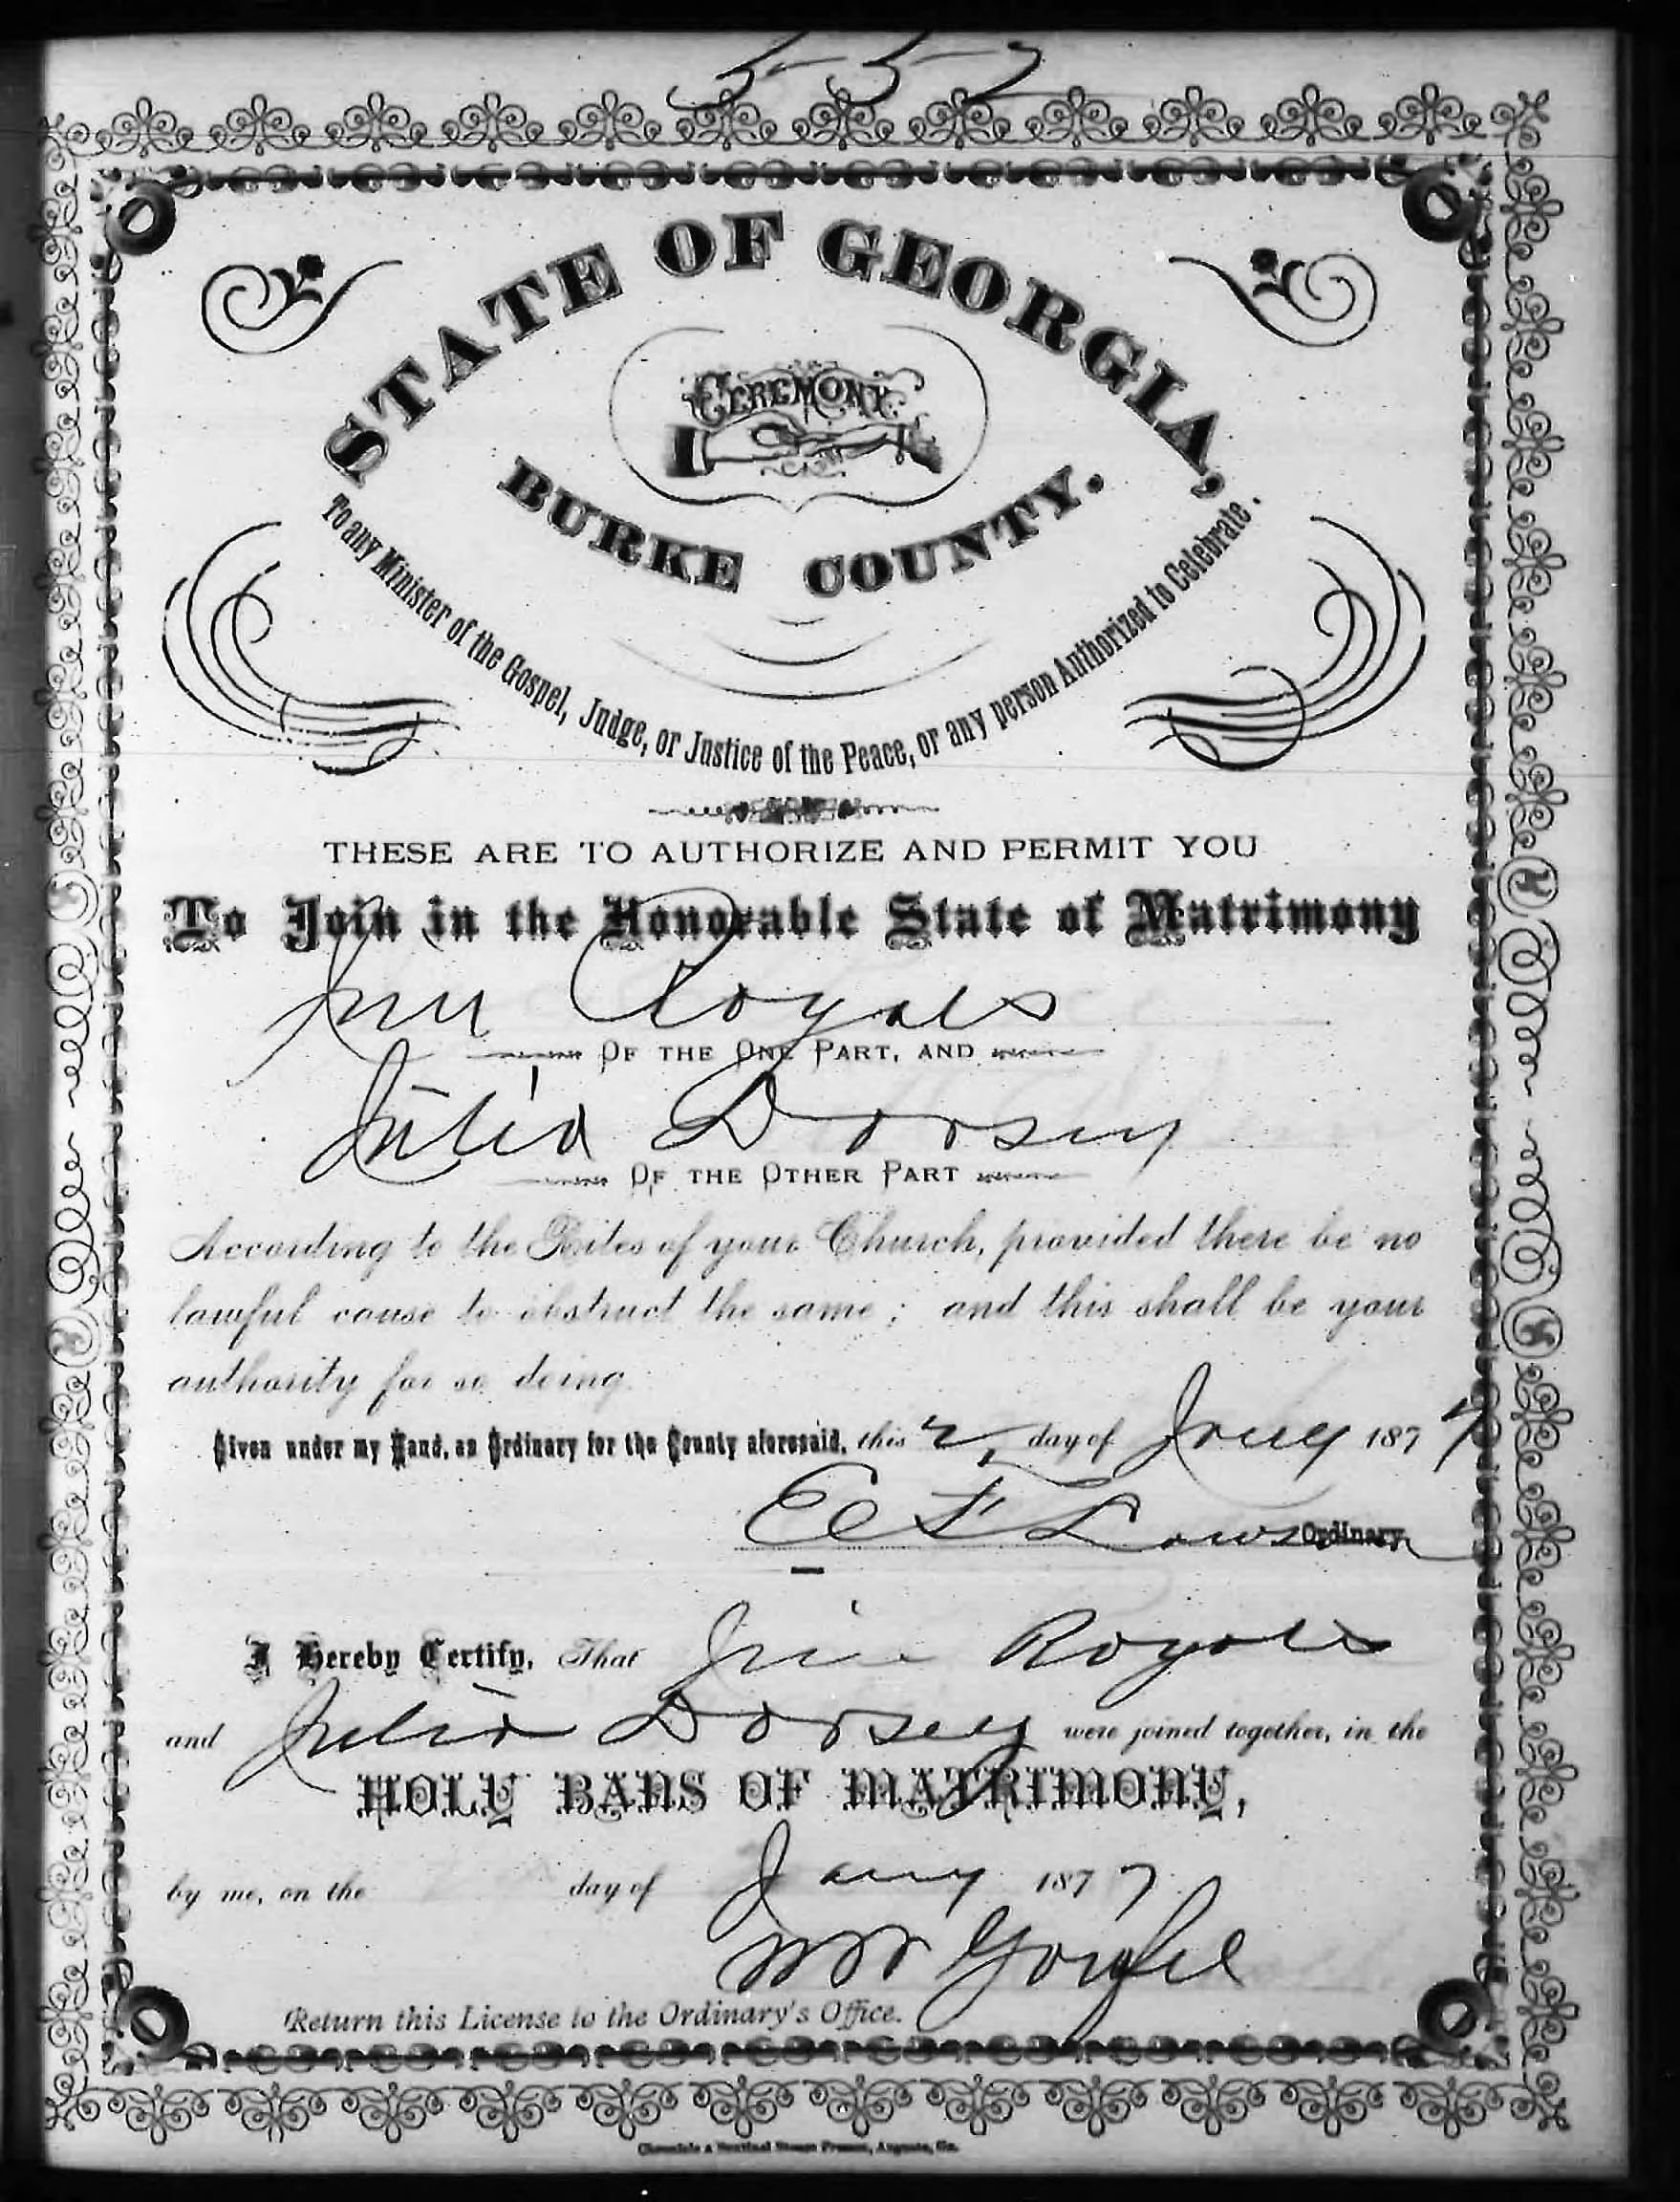 552
STATE OF GEORGIA,
CEREMONY
BURKE COUNTY.
To any Minister of the Gospel, Judge, or Justice of the Peace, or any person Authorized to Celebrate.
THESE ARE TO AUTHORIZE AND PERMIT YOU
To Join in the Honorable State of Matrimony
Royals
OF THE ONE PART, AND
Julia Dorsey
OF THE OTHER PART
According to the Rites of your Church, provided there be no
lawful cause to obstruct the same; and this shall be your
authority for so doing.
Given under my Hand, as Ordinary for the County aforesaid, this 2 day of Jany 1877
E F Lawson Ordinary
I Hereby Certify, That Royals
and Julia Dorsey were joined together, in the
HOLY BANS OF MATRIMONY,
by me, on the day of Jany 1877
Return this License to the Ordinary's Office.
Chronicle & Sentinel Steam Presses, Augusta, Ga.